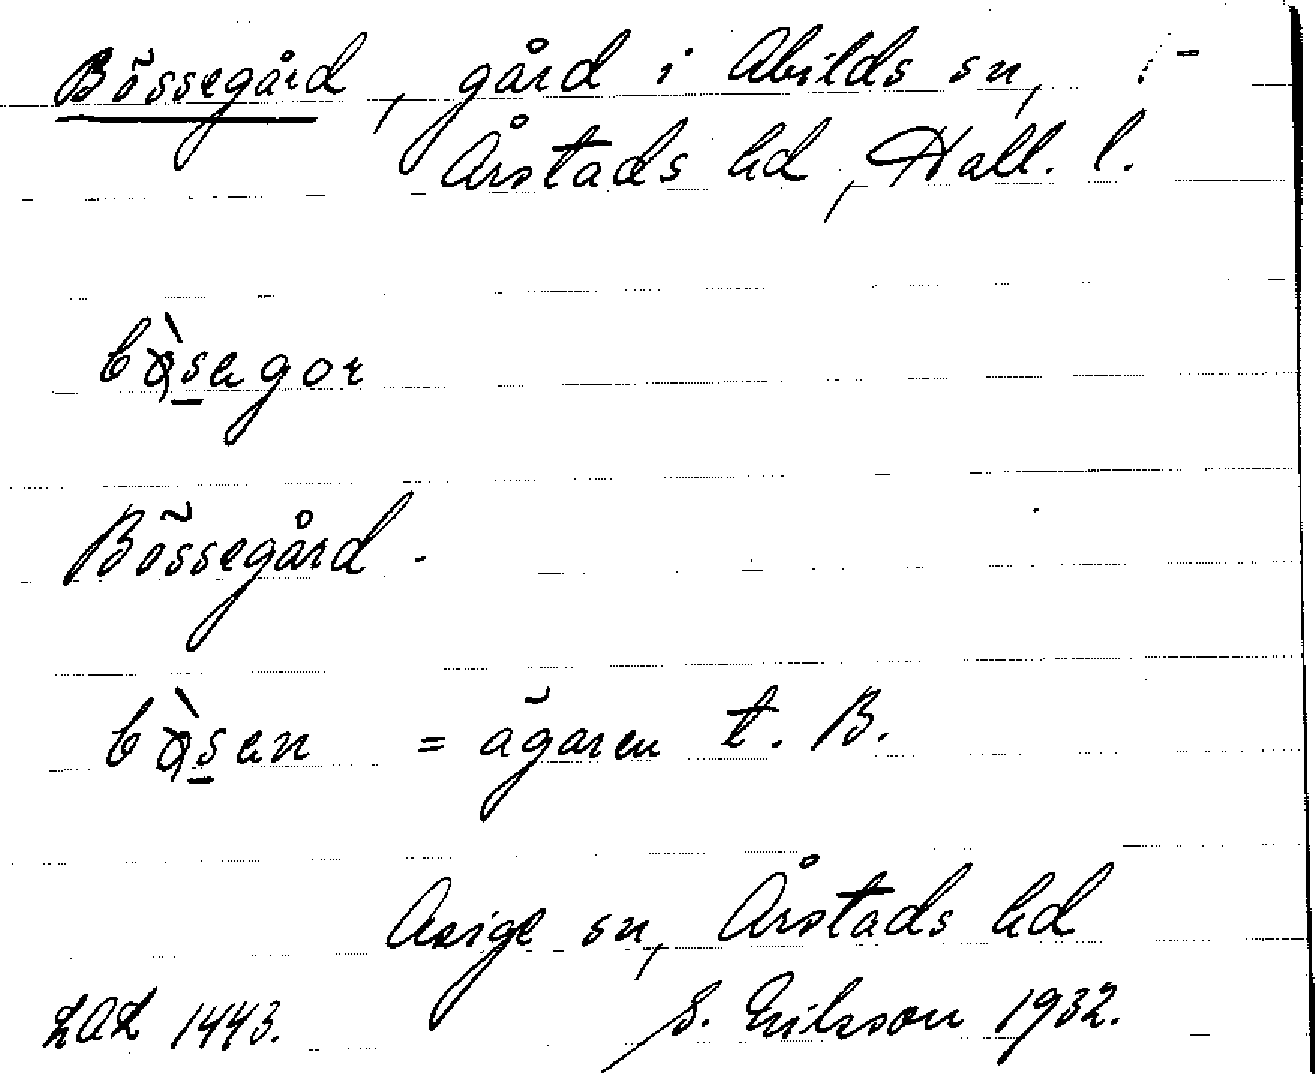 Bössegård, gård i Abilds sn,
Årstads hd, Hall. l.
bø̀sagor
Bössegård.
bø̀san = ägaren t. B.
Asige sn, Årstads hd
LAL 1443. S. Erikson 1932.